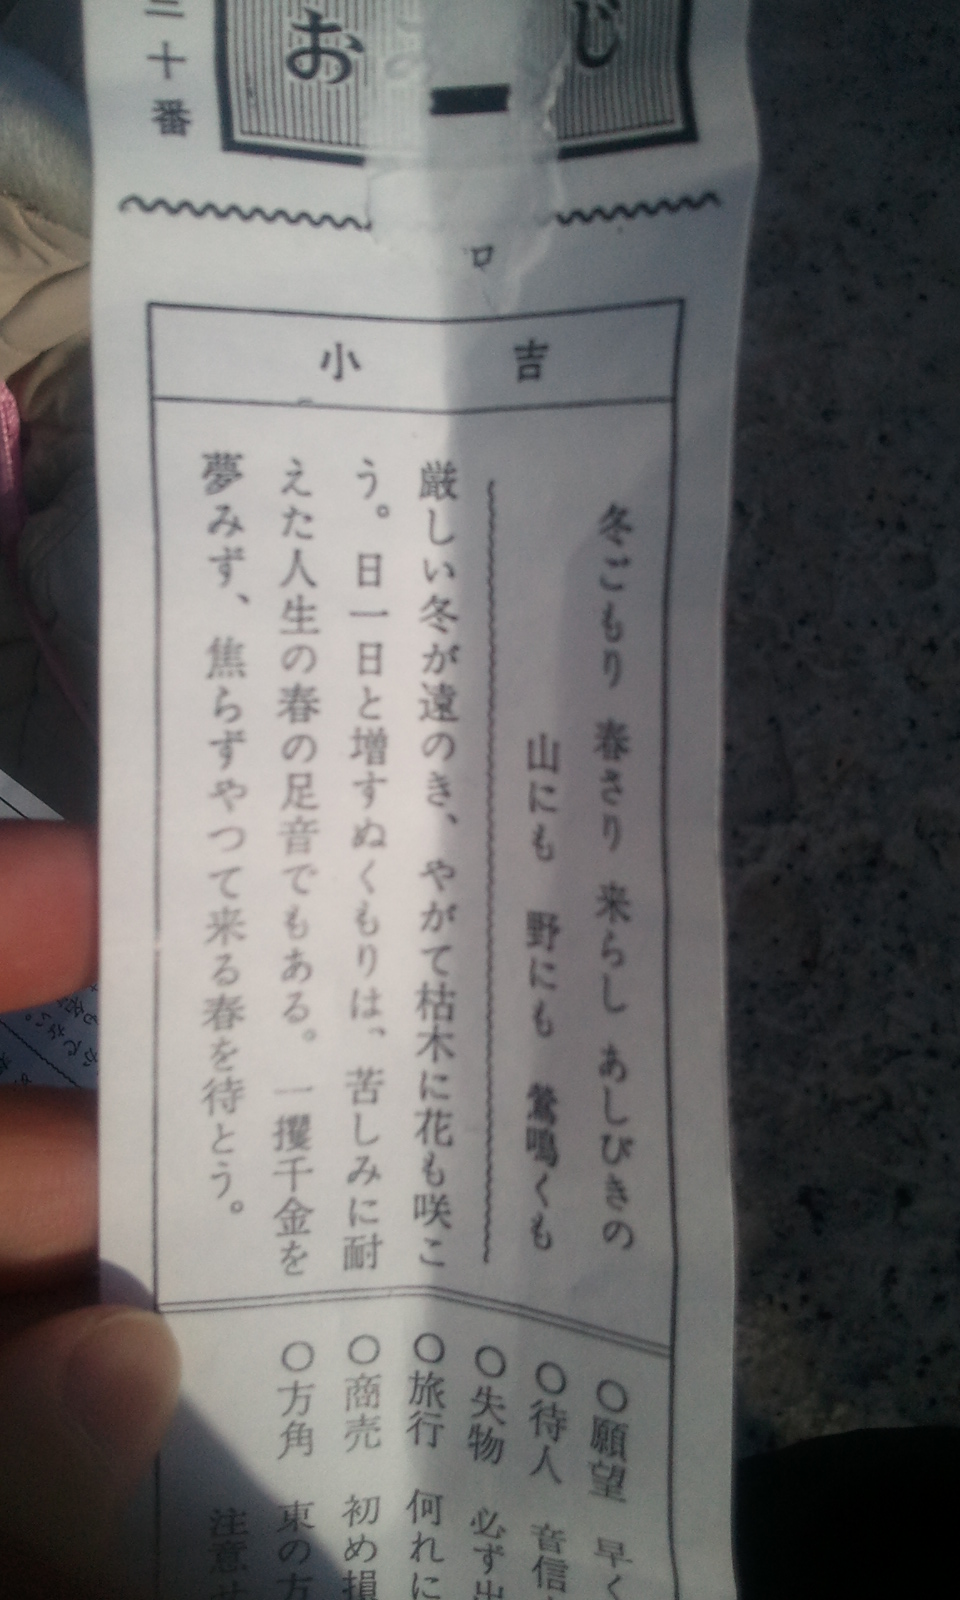 おみ じ
二十番
小吉
冬ごもり 春さり 来らし あしびきの
山にも 野にも 鶯鳴くも
厳しい冬が遠のき、やがて枯木に花も咲こ
う。日一日と増すぬくもりは、苦しみに耐
えた人生の春の足音でもある。一攫千金を
夢みず、焦らずやつて来る春を待とう。
○願望 早く
○待人 音信
○失物 必ず出
○旅行 何れに
○商売 初め損
○方角 東の方
注意せ